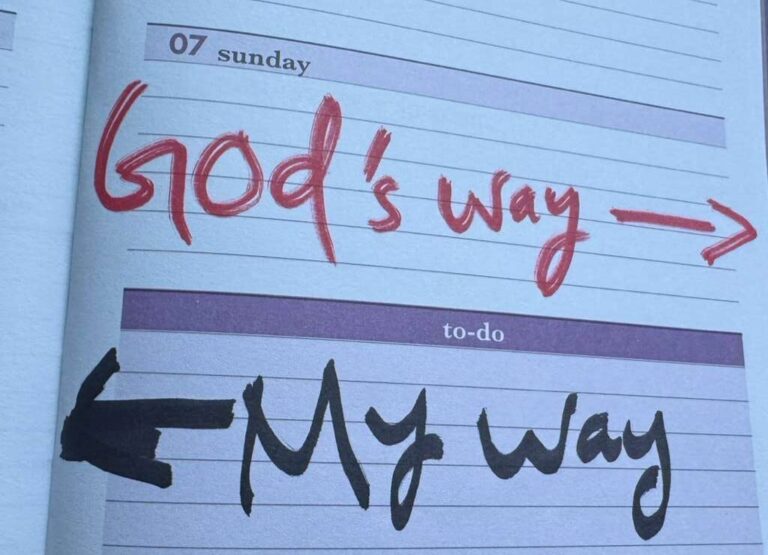 07 sunday
God's way →
to-do
← My way